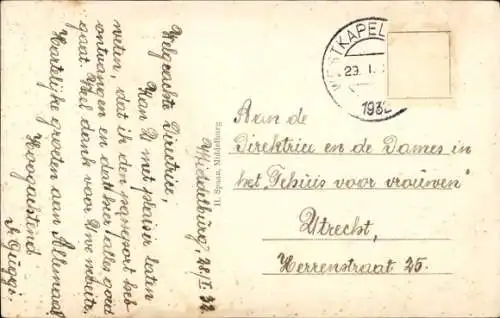 Middelburg 28/I 32.
Welgeachte Directrice,
Kan U met plaisir laten
weten, dat ik den paraport heb
ontvangen en dat hier alles goed
gaat. Veel dank voor Uwe moeite.
Hartelijke groeten aan Allemaal
Hoogachtend
H. Spaan, Middelburg
WESTKAPEL
29.I.
1932
Aan de
Direktrice en de Dames in
het Tehuis voor vrouwen"
Utrecht,
Herrenstraat 25.